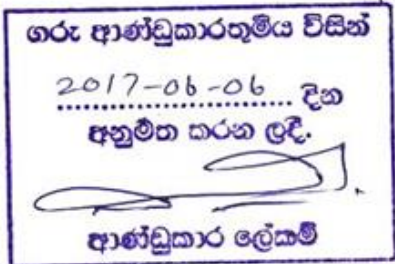 ගරු ආණ්ඩුකාරතුමිය විසින්
2017-06-06 දින
අනුමත කරන ලදී.
ආණ්ඩුකාර ලේකම්